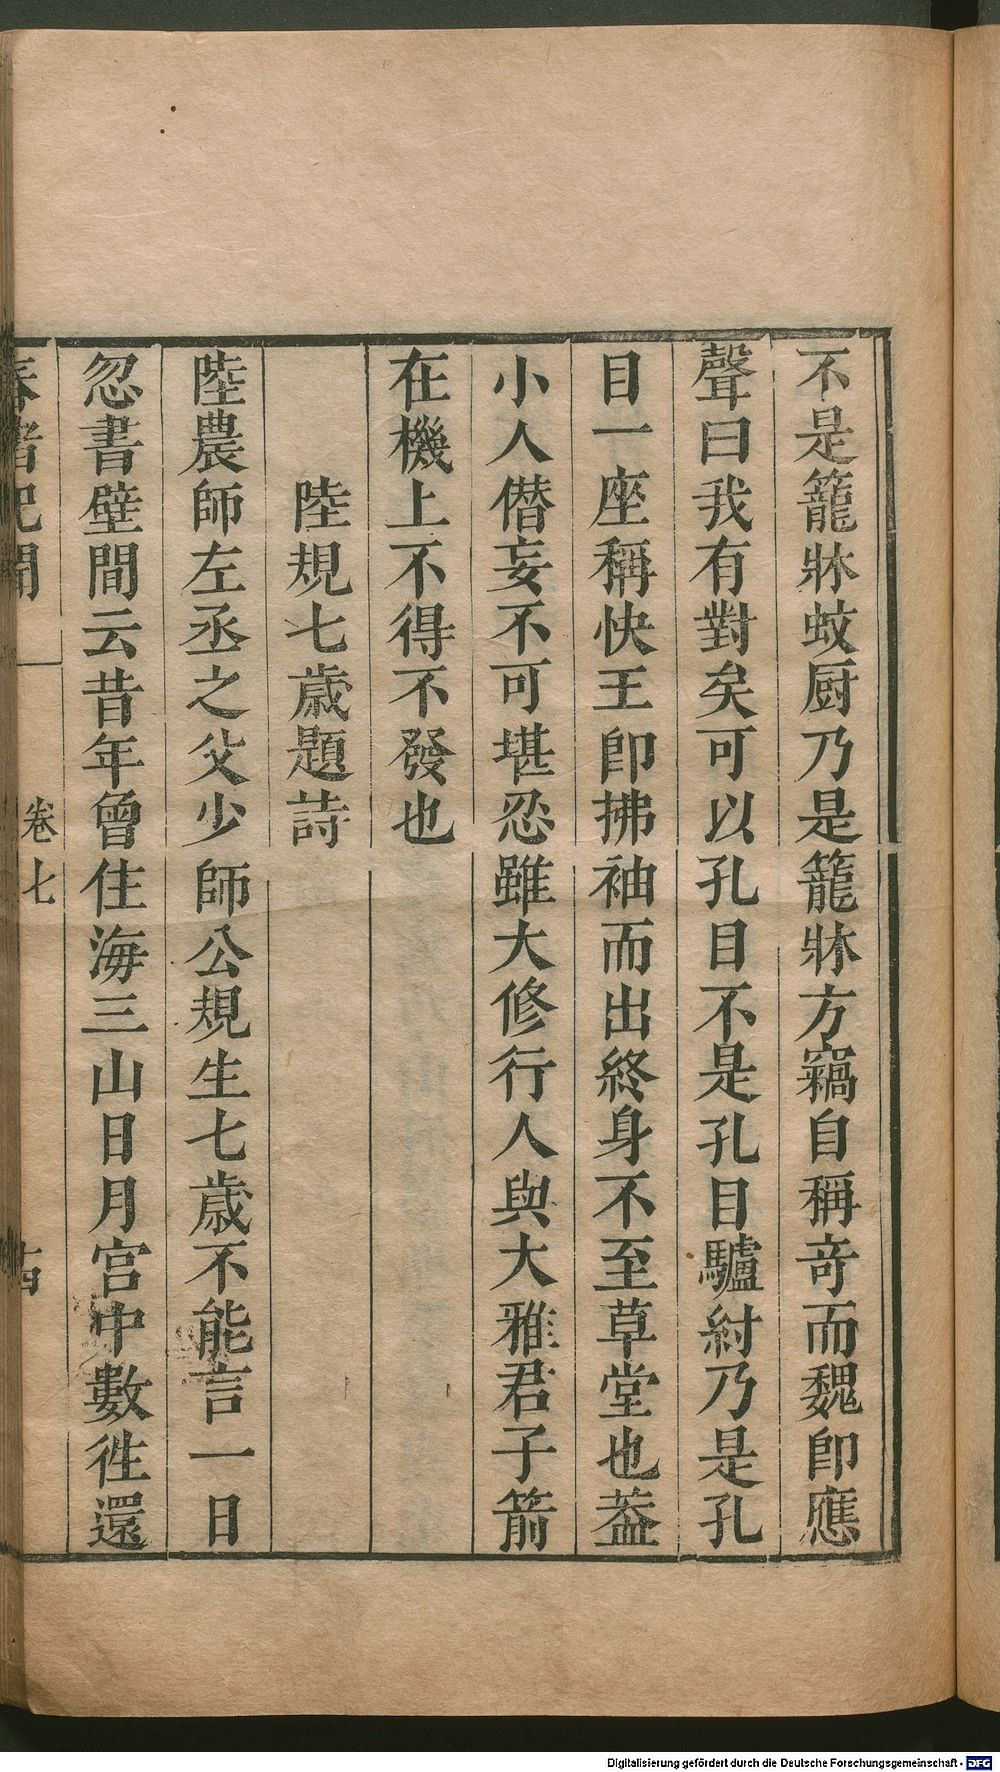 不是籠牀蚊厨乃是籠牀方竊自稱竒而魏卽應
聲曰我有對矣可以孔目不是孔目驢紂乃是孔
目一座稱快王卽拂袖而出終身不至草堂也葢
小人僭妄不可堪忍雖大修行人與大雅君子箭
在機上不得不發也
陸規七歲題詩
陸農師左丞之父少師公規生七歲不能言一日
忽書壁間云昔年曾住海三山日月宫中數徃還
春渚紀聞
卷七
Digitalisierung gefördert durch die Deutsche Forschungsgemeinschaft - DFG